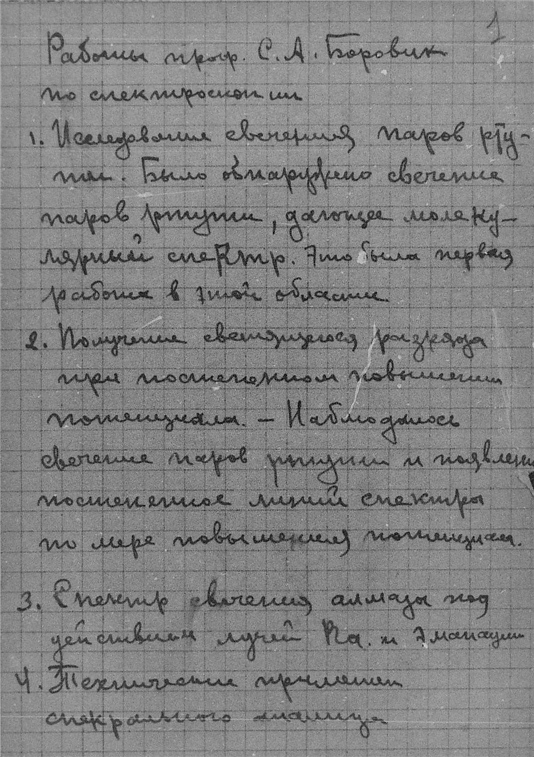 1
Работы проф. С. А. Боровик
по спектроскопии
1. Исследование свечения паров рту-
ти. Было обнаружено свечение
паров ртути, дающее молеку-
лярный спектр. Это была первая
работа в этой области.
2. Получение светящегося разряда
при постепенном повышении
потенциала. – Наблюдалось
свечение паров ртути и появлен
постепенное линий спектра
по мере повышения потенциал.
3. Спектр свечения алмаза под
действием лучей Ra. и эманации
4. Технические применен
спекрального анализа